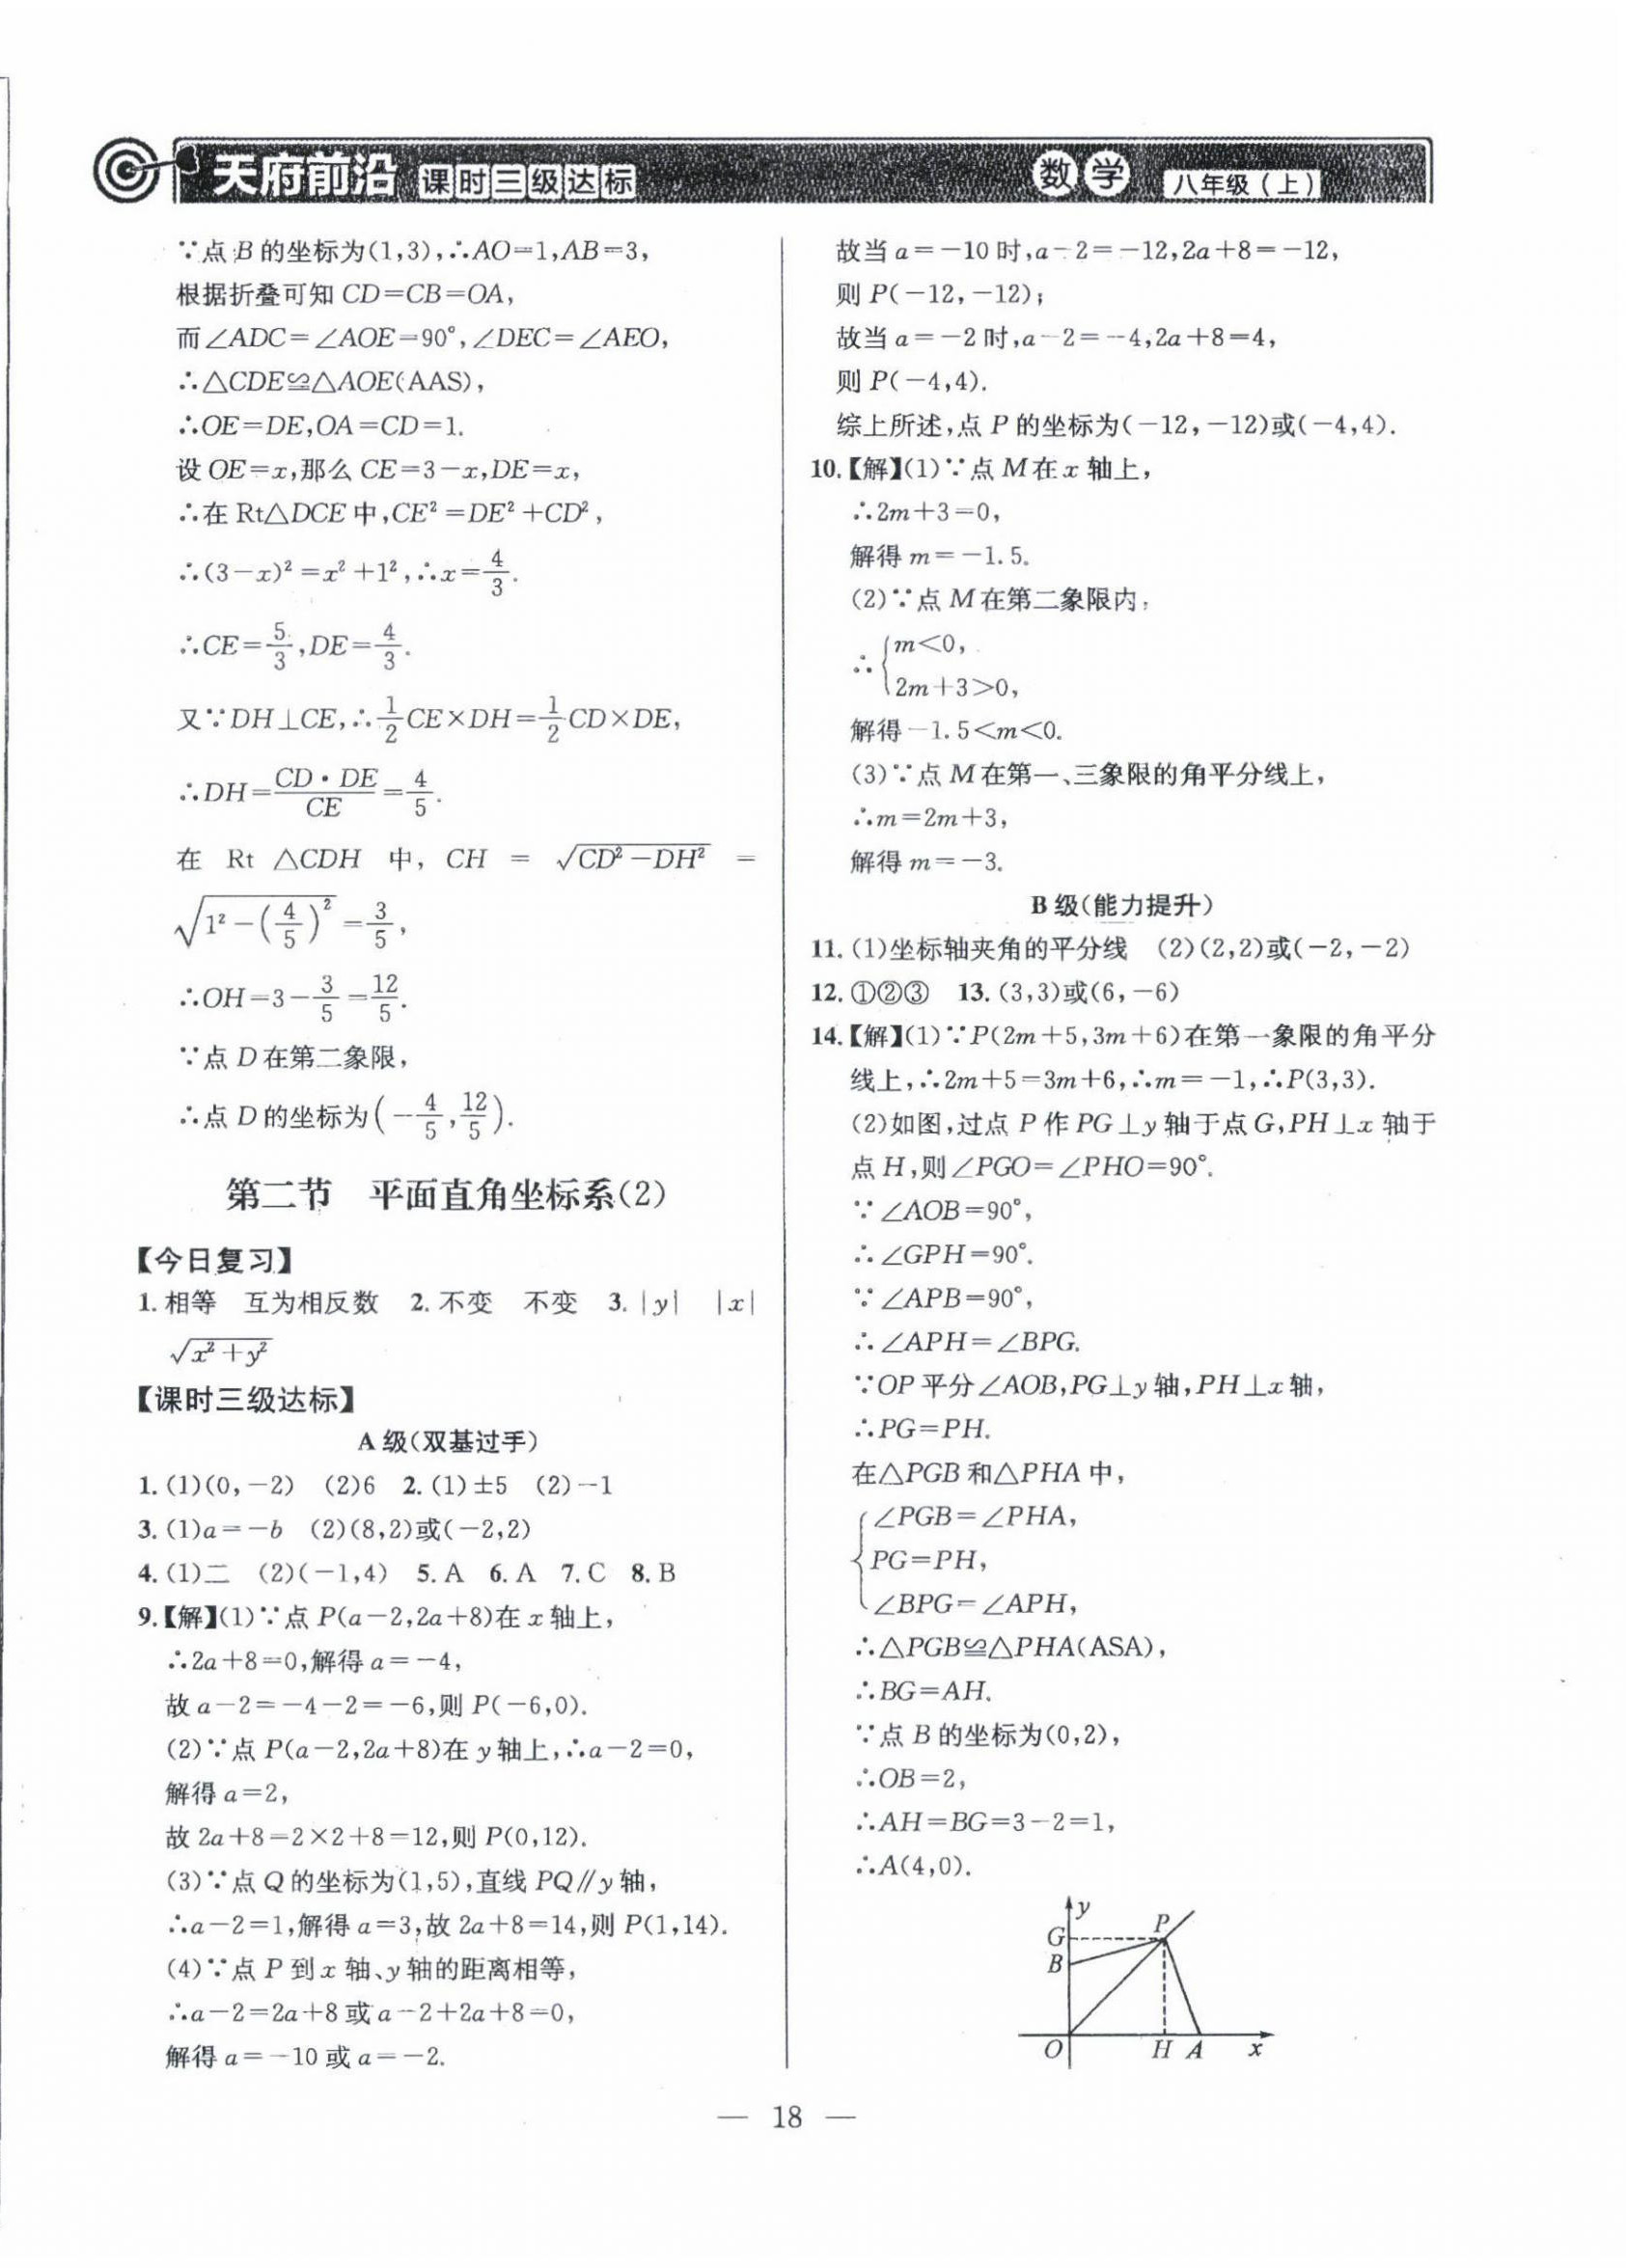 天府前沿 课时三级达标 数学 八年级(上)
∵点B的坐标为(1,3),∴AO=1,AB=3,
根据折叠可知CD=CB=OA,
而∠ADC=∠AOE=90°,∠DEC=∠AEO,
∴△CDE≌△AOE(AAS),
∴OE=DE,OA=CD=1.
设OE=x,那么CE=3-x,DE=x,
∴在Rt△DCE中,CE²=DE²+CD²,
∴(3-x)²=x²+1²,∴x=4/3.
∴CE=5/3,DE=4/3.
又∵DH⊥CE,∴1/2CE×DH=1/2CD×DE,
∴DH=CD·DE/CE=4/5.
在 Rt △CDH 中, CH = √(CD²-DH²) =
√(1²-(4/5)²)=3/5,
∴OH=3-3/5=12/5.
∵点D在第二象限,
∴点D的坐标为(-4/5,12/5).
第二节 平面直角坐标系(2)
【今日复习】
1.相等 互为相反数 2.不变 不变 3.|y| |x|
√(x²+y²)
【课时三级达标】
A级(双基过手)
1.(1)(0,-2) (2)6 2.(1)±5 (2)-1
3.(1)a=-b (2)(8,2)或(-2,2)
4.(1)二 (2)(-1,4) 5.A 6.A 7.C 8.B
9.【解】(1)∵点P(a-2,2a+8)在x轴上,
∴2a+8=0,解得a=-4,
故a-2=-4-2=-6,则P(-6,0).
(2)∵点P(a-2,2a+8)在y轴上,∴a-2=0,
解得a=2,
故2a+8=2×2+8=12,则P(0,12).
(3)∵点Q的坐标为(1,5),直线PQ∥y轴,
∴a-2=1,解得a=3,故2a+8=14,则P(1,14).
(4)∵点P到x轴、y轴的距离相等,
∴a-2=2a+8或a-2+2a+8=0,
解得a=-10或a=-2.
故当a=-10时,a-2=-12,2a+8=-12,
则P(-12,-12);
故当a=-2时,a-2=-4,2a+8=4,
则P(-4,4).
综上所述,点P的坐标为(-12,-12)或(-4,4).
10.【解】(1)∵点M在x轴上,
∴2m+3=0,
解得m=-1.5.
(2)∵点M在第二象限内,
∴{m<0,
2m+3>0,
解得-1.5<m<0.
(3)∵点M在第一、三象限的角平分线上,
∴m=2m+3,
解得m=-3.
B级(能力提升)
11.(1)坐标轴夹角的平分线 (2)(2,2)或(-2,-2)
12.①②③ 13.(3,3)或(6,-6)
14.【解】(1)∵P(2m+5,3m+6)在第一象限的角平分
线上,∴2m+5=3m+6,∴m=-1,∴P(3,3).
(2)如图,过点P作PG⊥y轴于点G,PH⊥x轴于
点H,则∠PGO=∠PHO=90°.
∵∠AOB=90°,
∴∠GPH=90°.
∵∠APB=90°,
∴∠APH=∠BPG.
∵OP平分∠AOB,PG⊥y轴,PH⊥x轴,
∴PG=PH.
在△PGB和△PHA中,
{∠PGB=∠PHA,
PG=PH,
∠BPG=∠APH,
∴△PGB≌△PHA(ASA),
∴BG=AH.
∵点B的坐标为(0,2),
∴OB=2,
∴AH=BG=3-2=1,
∴A(4,0).
y
G P
B
O H A x
— 18 —